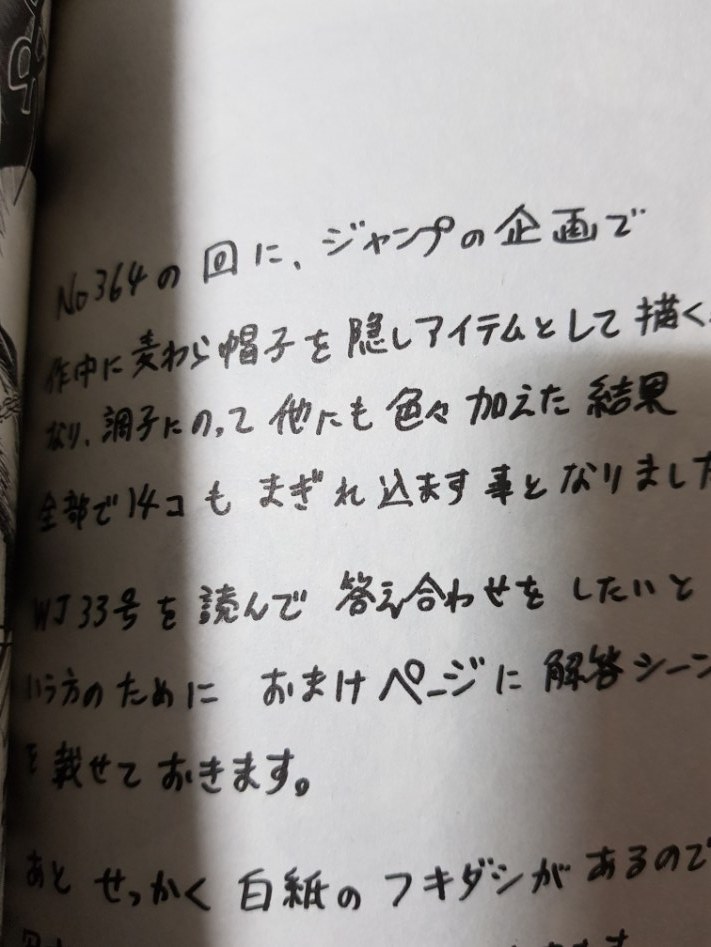 No364の回に、ジャンプの企画で
作中に麦わら帽子を隠しアイテムとして描く
なり、調子にのって他にも色々加えた結果
全部で14コもまぎれ込ます事となりました
WJ33号を読んで答え合わせをしたいと
いう方のためにおまけページに解答シーン
を載せておきます。
あとせっかく白紙のフキダシがあるので